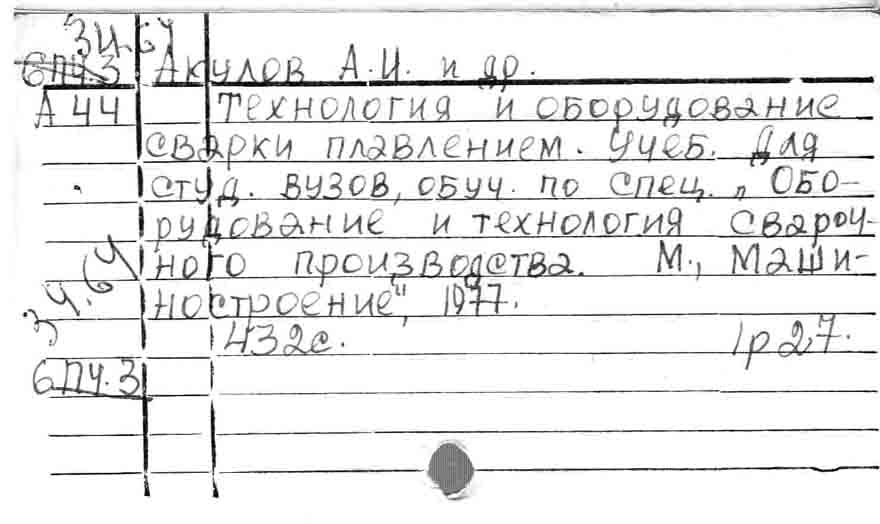 34.64
6П4.3 Акулов А.И. и др.
А 44 Технология и оборудование
сварки плавлением. Учеб. для
студ. вузов, обуч. по спец. „Обо-
рудование и технология свароч-
ного производства. М., Маши-
ностроение", 1977.
34.64
432с. 1р27.
6П4.3